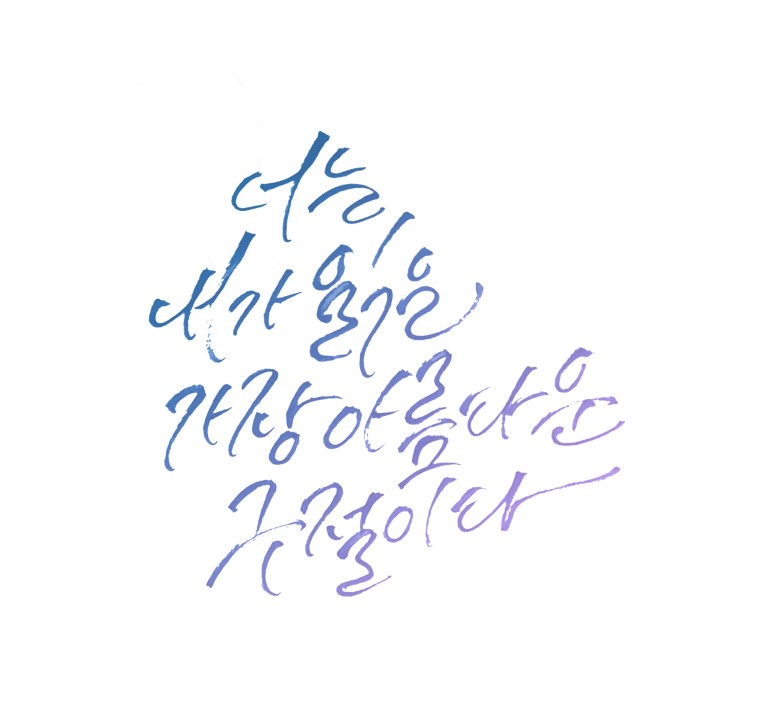 너는,
내가 읽은
가장 아름다운
구절이다